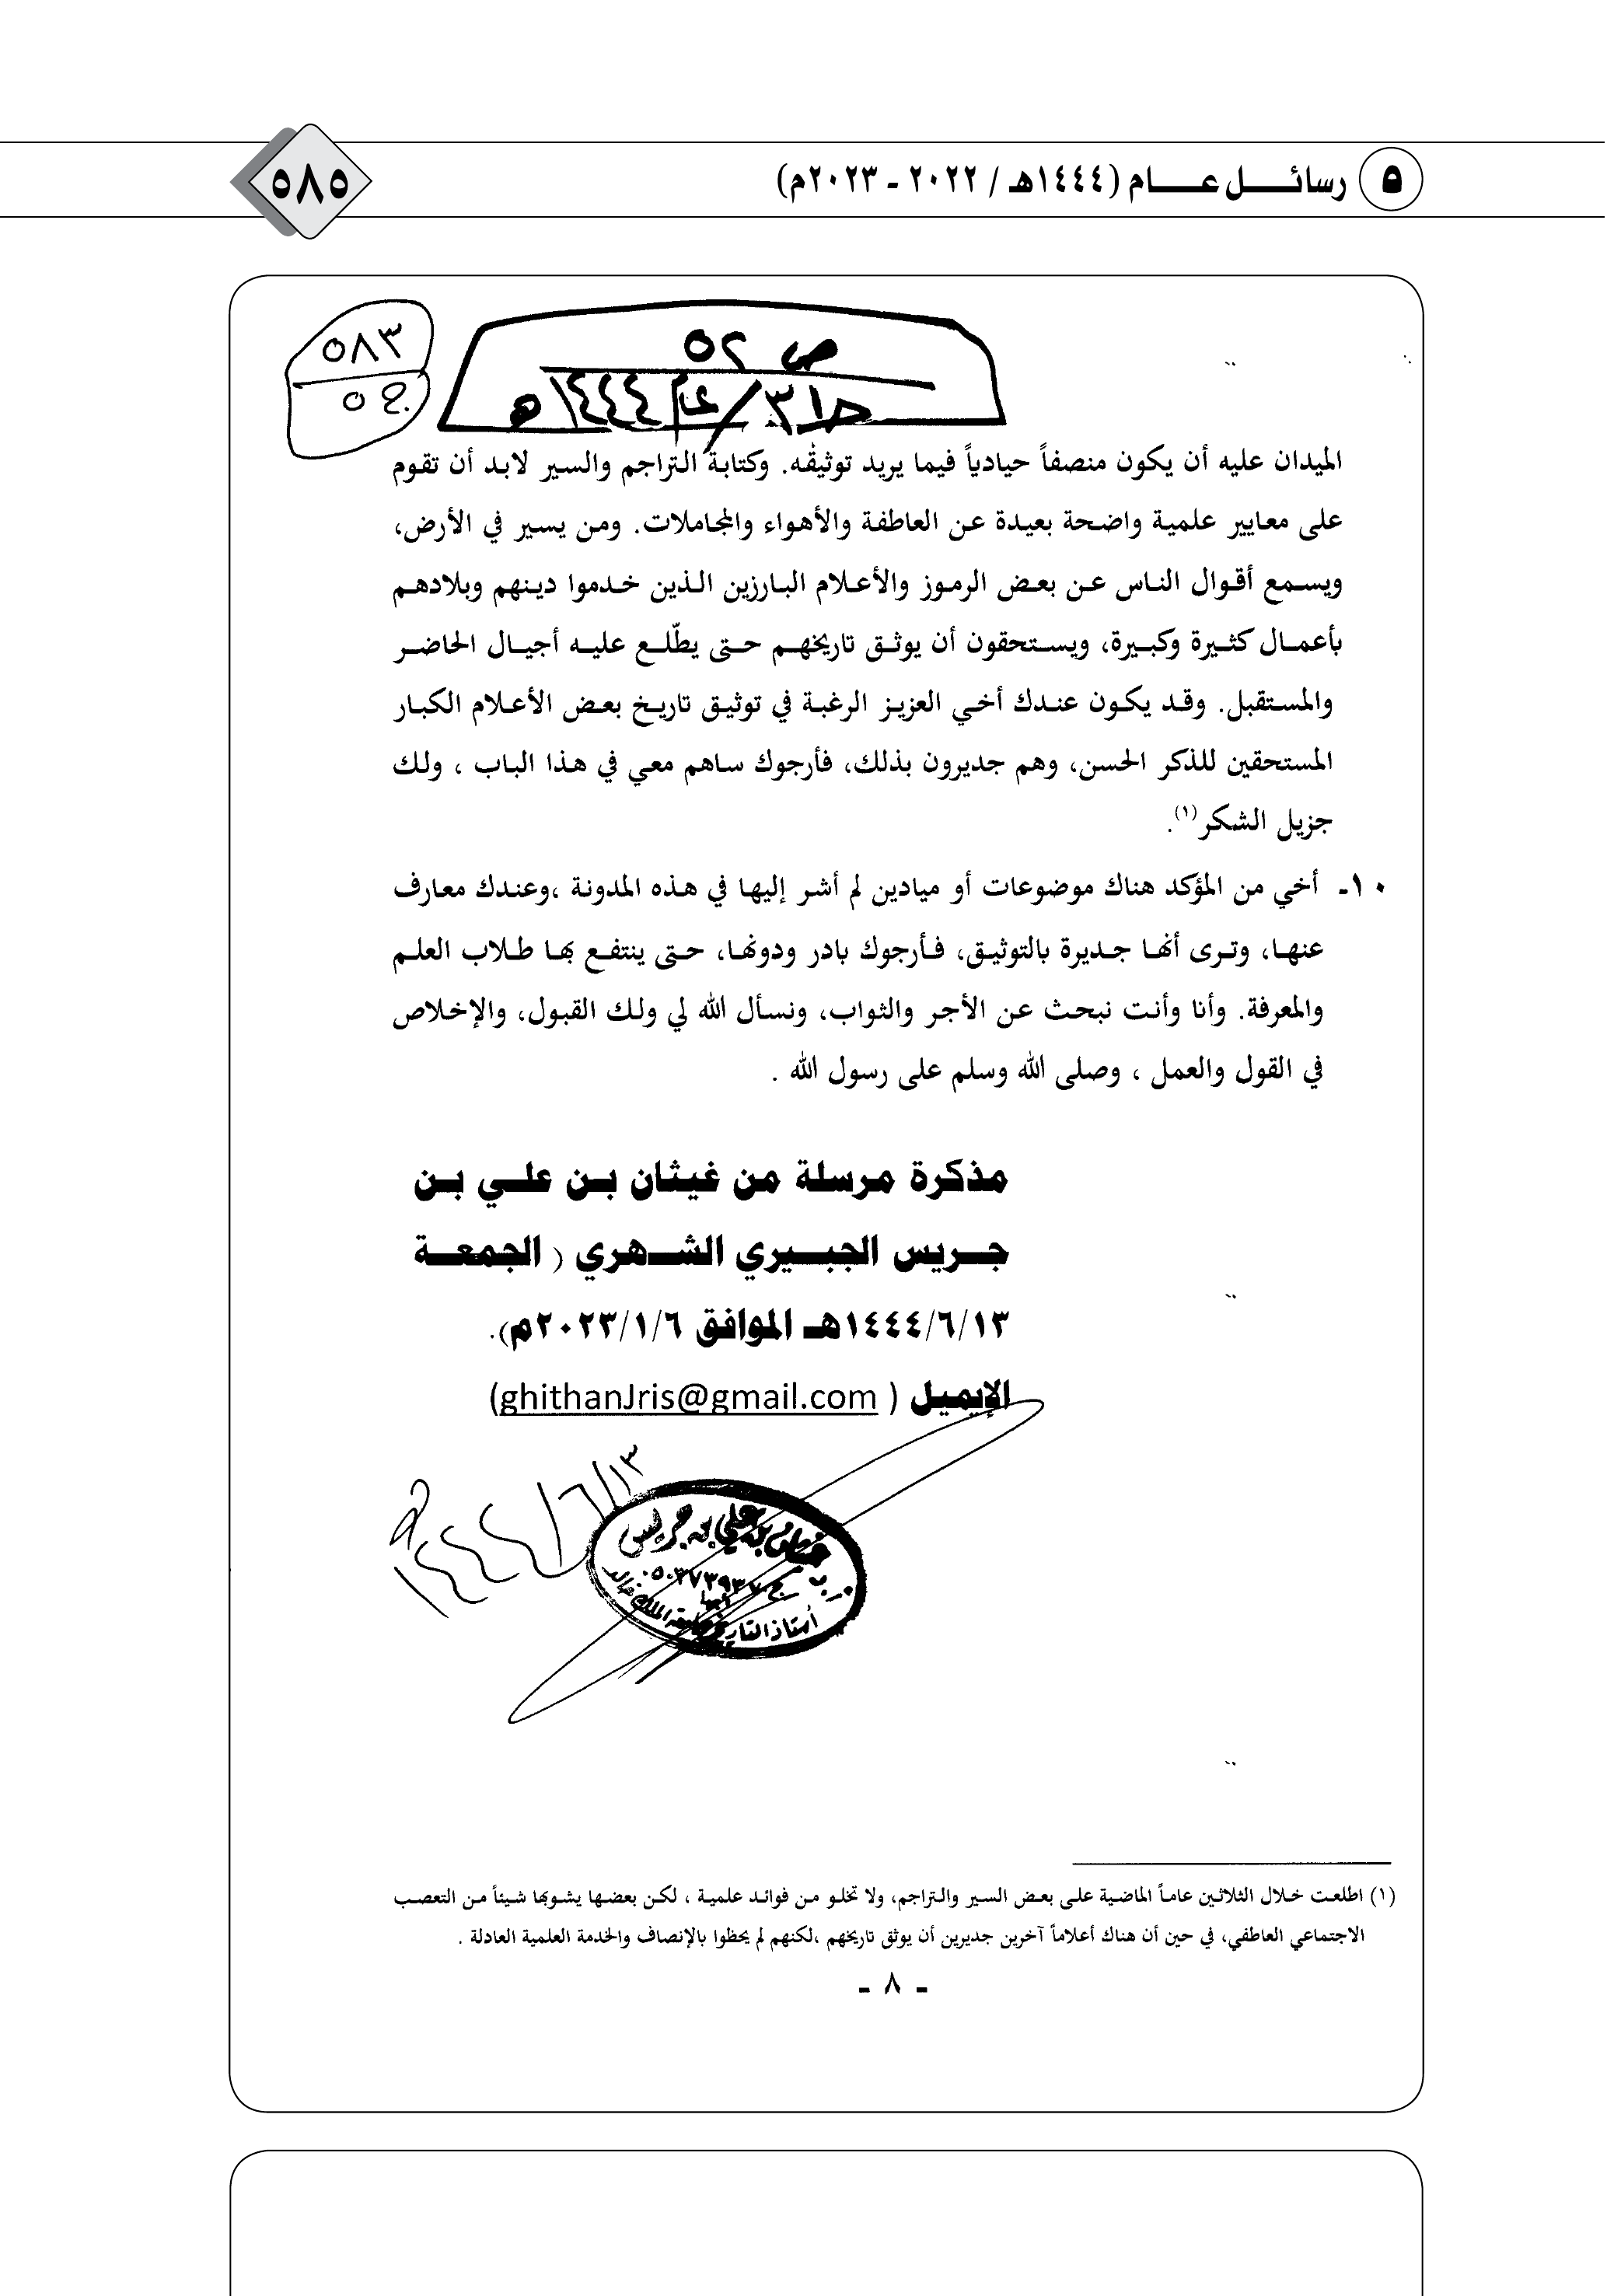 ٥ رسائل عام (١٤٤٤هـ / ٢٠٢٢ ـ ٢٠٢٣م)
٥٨٥
ص ٥٢
٥٨٣
ج ٥
ح٣١/عام ١٤٤٤هـ
الميدان عليه أن يكون منصفاً حيادياً فيما يريد توثيقه. وكتابة التراجم والسير لابد أن تقوم
على معايير علمية واضحة بعيدة عن العاطفة والأهواء والمجاملات. ومن يسير في الأرض،
ويسمع أقوال الناس عن بعض الرموز والأعلام البارزين الذين خدموا دينهم وبلادهم
بأعمال كثيرة وكبيرة، ويستحقون أن يوثق تاريخهم حتى يطّلع عليه أجيال الحاضر
والمستقبل. وقد يكون عندك أخي العزيز الرغبة في توثيق تاريخ بعض الأعلام الكبار
المستحقين للذكر الحسن، وهم جديرون بذلك، فأرجوك ساهم معي في هذا الباب ، ولك
جزيل الشكر(١).
١٠ـ أخي من المؤكد هناك موضوعات أو ميادين لم أشر إليها في هذه المدونة ،وعندك معارف
عنها، وترى أنها جديرة بالتوثيق، فأرجوك بادر ودونها، حتى ينتفع بها طلاب العلم
والمعرفة. وأنا وأنت نبحث عن الأجر والثواب، ونسأل الله لي ولك القبول، والإخلاص
في القول والعمل ، وصلى الله وسلم على رسول الله .
مذكرة مرسلة من غيثان بن علي بن
جريس الجبيري الشهري ( الجمعة
١٤٤٤/٦/١٣هـ الموافق ٢٠٢٣/١/٦م).
الإيميل ( ghithanJris@gmail.com)
١٤٤٤/٦/١٣هـ
بن علي بن جريس
أستاذ التاريخ بجامعة الملك خالد
(١) اطلعت خلال الثلاثين عاماً الماضية على بعض السير والتراجم، ولا تخلو من فوائد علمية ، لكن بعضها يشوبها شيئاً من التعصب
الاجتماعي العاطفي، في حين أن هناك أعلاماً آخرين جديرين أن يوثق تاريخهم ،لكنهم لم يحظوا بالإنصاف والخدمة العلمية العادلة .
- ٨ -